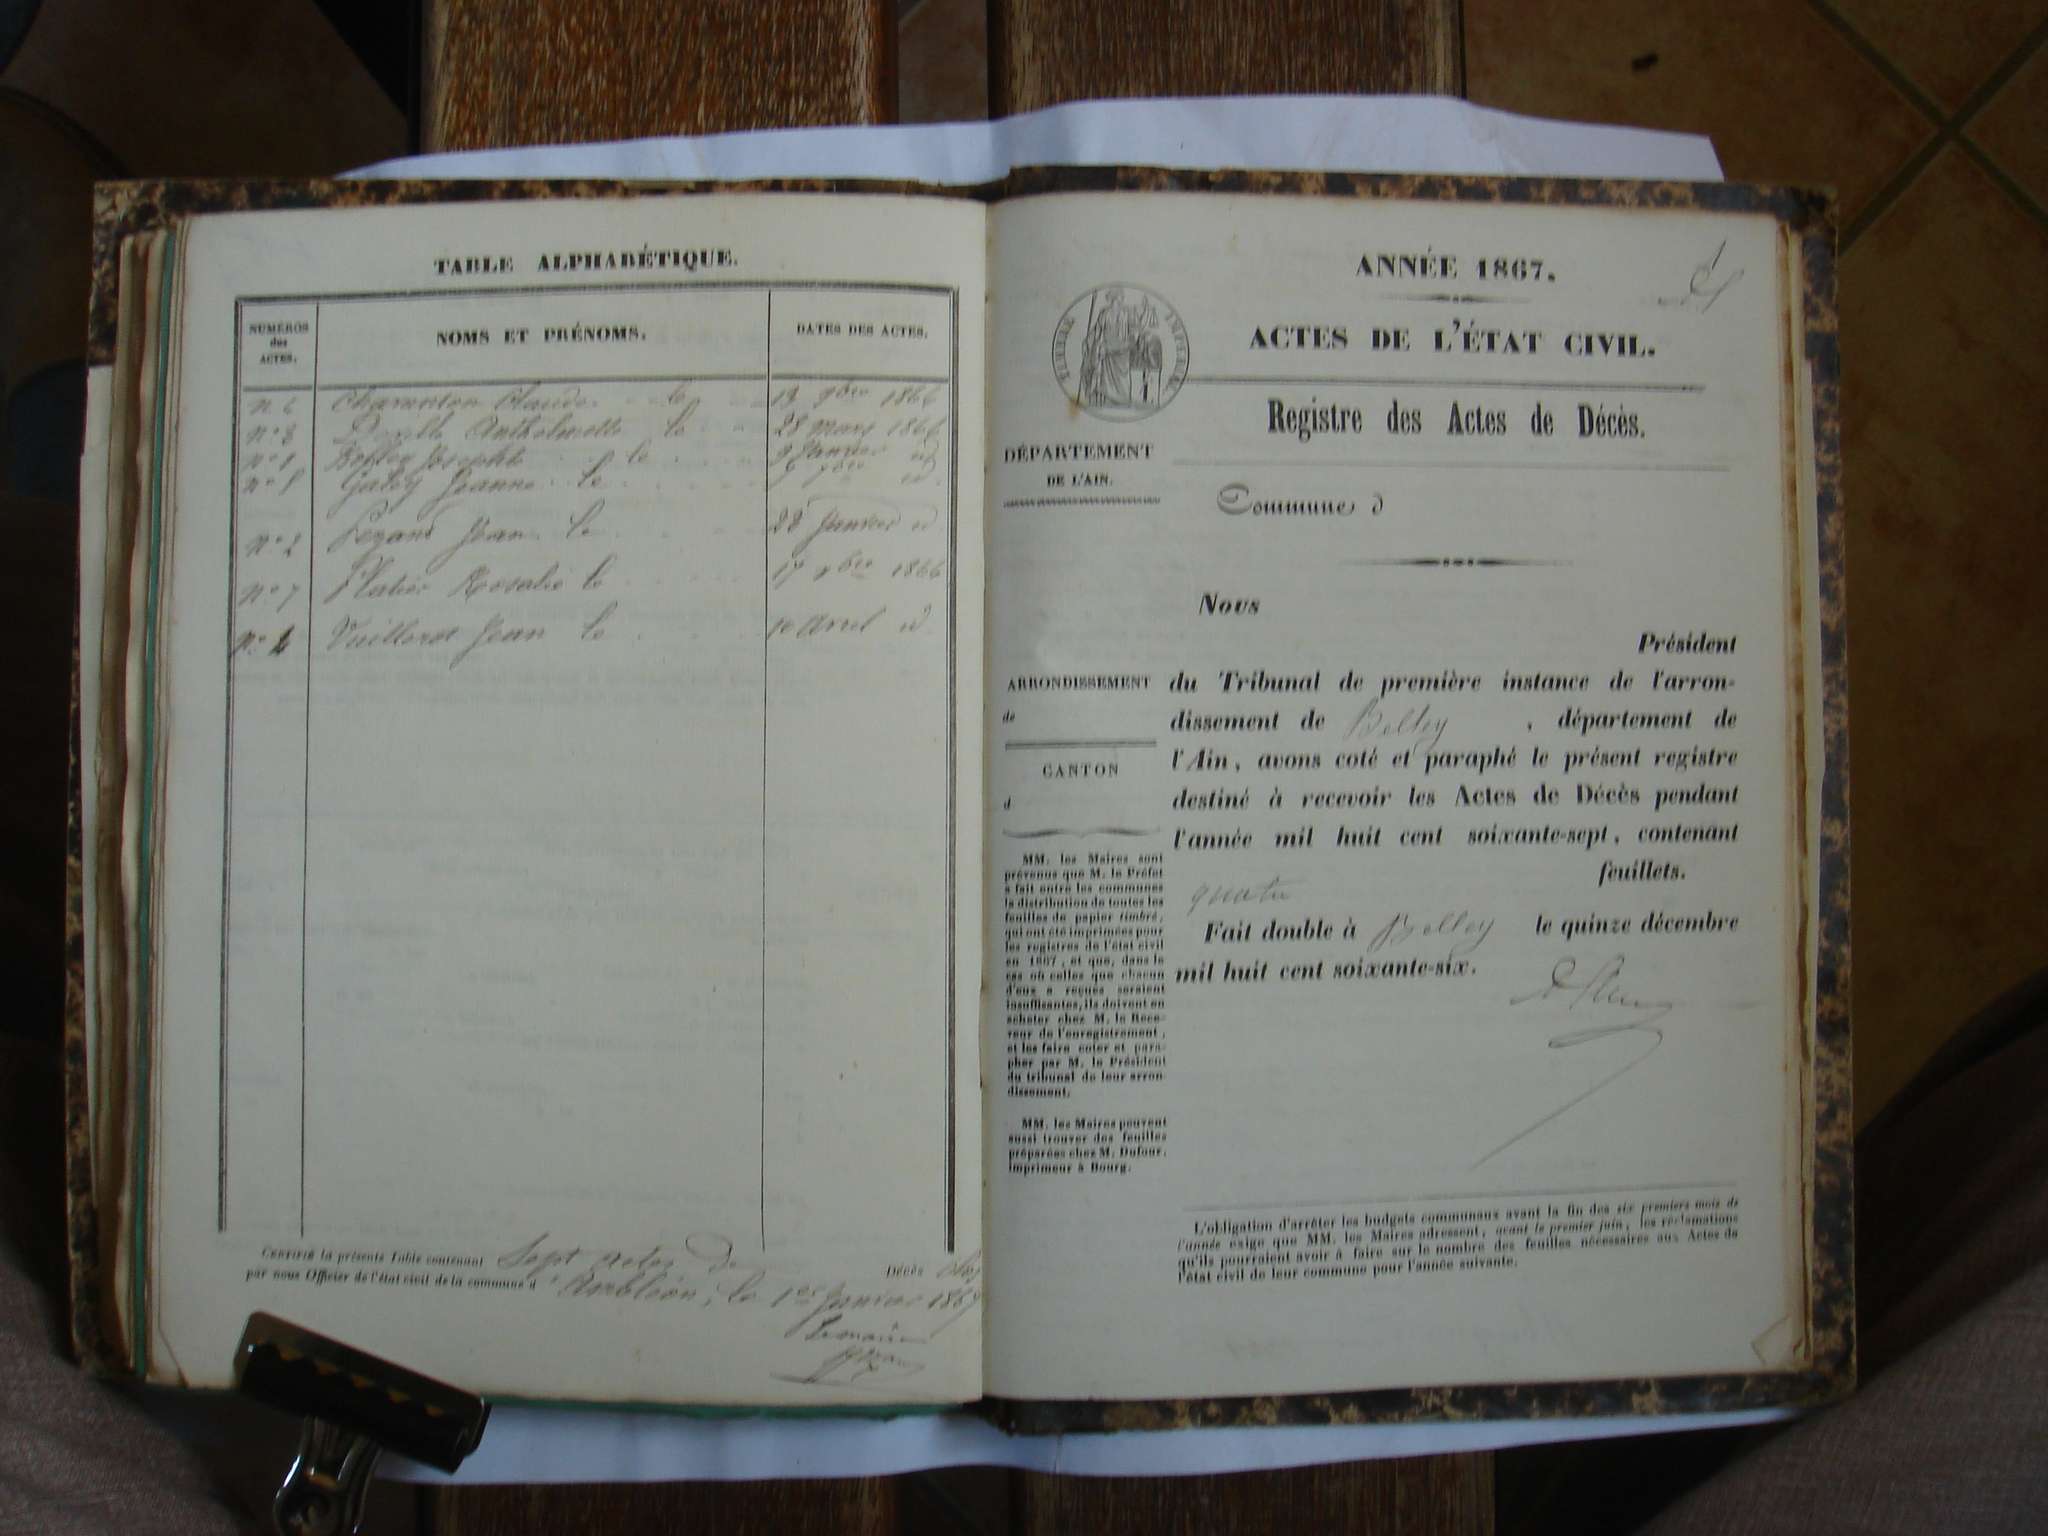 TABLE ALPHABÉTIQUE.
NUMÉROS
des
ACTES.
NOMS ET PRÉNOMS.
DATES DES ACTES.
n° 6 Claude le 13 9bre 1866
n° 3 Anthelmette le 28 mars 1866
n° 1 Josephte le 9 Janvier id
n° 8 Galey Jeanne le 9bre id.
n° 2 Pezant Jean le 22 Janvier id
n° 7 Rosalie le 17 9bre 1866
n° 4 Vuillerot Jean le avril id.
CERTIFIÉ la présente Table contenant Sept actes de Décès
par nous Officier de l'état civil de la commune d'Ambléon, le 1er Janvier 1867
Le maire
ANNÉE 1867.
ACTES DE L'ÉTAT CIVIL.
TIMBRE IMPÉRIAL
Registre des Actes de Décès.
DÉPARTEMENT
DE L'AIN.
Commune d
Nous
Président
ARRONDISSEMENT
de
CANTON
d
du Tribunal de première instance de l'arron-
dissement de Belley , département de
l'Ain, avons coté et paraphé le présent registre
destiné à recevoir les Actes de Décès pendant
l'année mil huit cent soixante-sept, contenant
quatre feuillets.
Fait double à Belley le quinze décembre
mil huit cent soixante-six.
MM. les Maires sont
prévenus que M. le Préfet
a fait entre les communes
la distribution de toutes les
feuilles de papier timbré,
qui ont été imprimées pour
les registres de l'état civil
en 1867, et que, dans le
cas où celles que chacun
d'eux a reçues seraient
insuffisantes, ils doivent en
acheter chez M. le Rece-
veur de l'enregistrement,
et les faire coter et para-
pher par M. le Président
du tribunal de leur arron-
dissement.
MM. les Maires peuvent
aussi trouver des feuilles
préparées chez M. Dufour,
imprimeur à Bourg.
L'obligation d'arrêter les budgets communaux avant la fin des six premiers mois de
l'année exige que MM. les Maires adressent, avant le premier juin, les réclamations
qu'ils pourraient avoir à faire sur le nombre des feuilles nécessaires aux Actes de
l'état civil de leur commune pour l'année suivante.